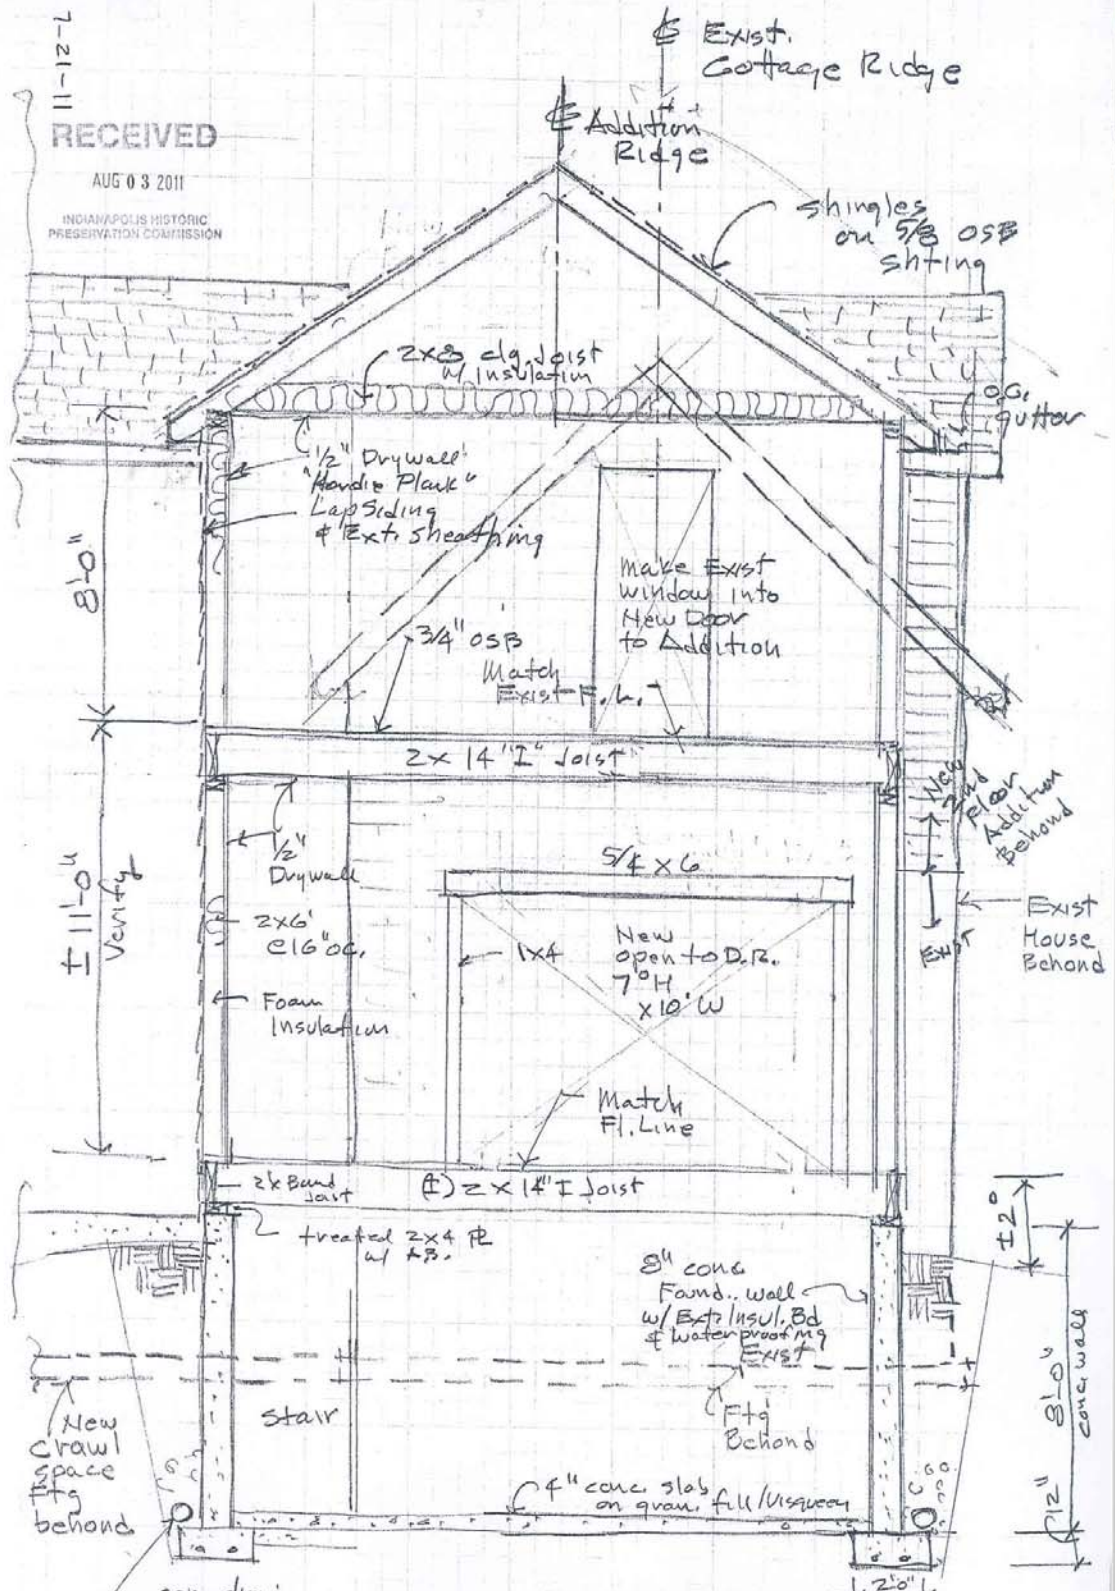 11-12-
RECEIVED
AUG 03 2011
INDIANAPOLIS HISTORIC
PRESERVATION COMMISSION
℄ Exist.
Cottage Ridge
℄ Addition
Ridge
shingles
on 5/8 OSB
shting
2x8 clg. Joist
w/ Insulation
O.G.
gutter
1/2" Drywall
"Hardie Plank"
Lap Siding
& Ext. sheathing
8'-0"
Make Exist
window into
New Door
to Addition
3/4" OSB
Match
Exist F.L.
2x14 "I" Joist
New
2nd
Floor
Addition
Behond
Exist
1/2"
Drywall
5/4 x 6
± 11'-0"
Verify
2x6'
@16"OC.
1x4
New
open to D.R.
7°H
x10'W
Exist
House
Behond
Foam
Insulation
Match
Fl. Line
2x Band
Joist
(E) 2x14" I Joist
treated 2x4 PL
w/ AB.
±2°
8" conc
Found.. wall
w/ Ext. Insul. Bd
& waterproofing
Exist
8'-0"
conc walls
New
crawl
space
Ftg
behond
stair
Ftg
Behond
4" conc slab
on gran. fill/Visqueen
12"
2'0"